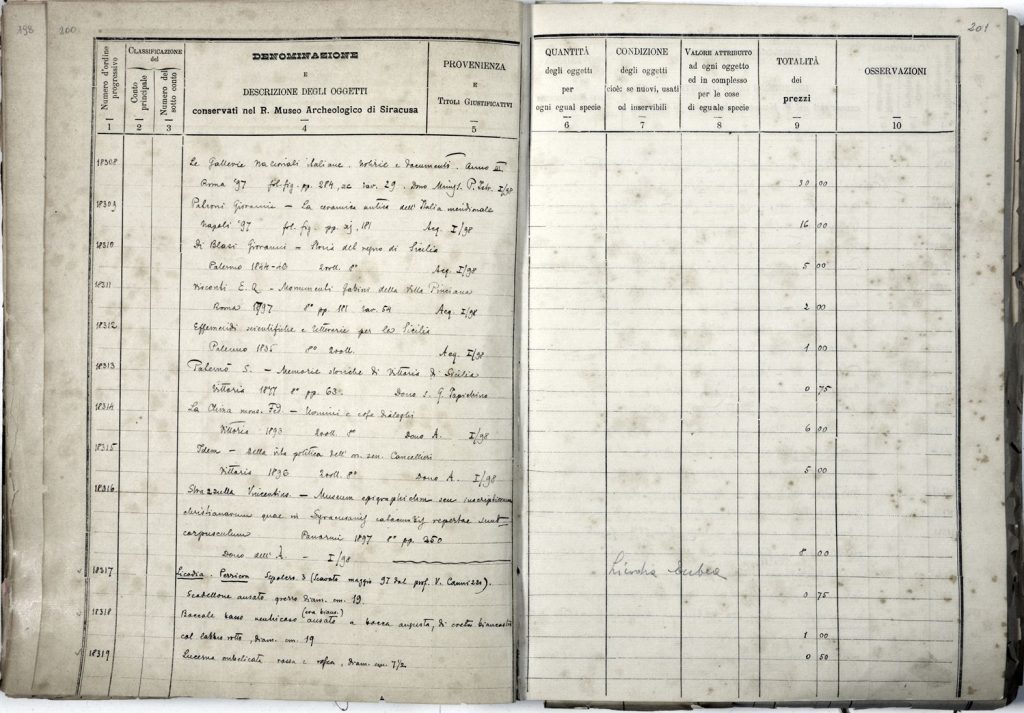 198 200
201
Numero d'ordine progressivo
CLASSIFICAZIONE del
Conto principale
Numero del sotto conto
DENOMINAZIONE
E
DESCRIZIONE DEGLI OGGETTI
conservati nel R. Museo Archeologico di Siracusa
PROVENIENZA
E
TITOLI GIUSTIFICATIVI
QUANTITÀ
degli oggetti
per
ogni egual specie
CONDIZIONE
degli oggetti
cioè: se nuovi, usati
od inservibili
VALORE ATTRIBUITO
ad ogni oggetto
ed in complesso
per le cose
di eguale specie
TOTALITÀ
dei
prezzi
OSSERVAZIONI
1 2 3 4 5 6 7 8 9 10
18308 Le Gallerie nazionali italiane. Notizie e documenti. Anno III.
Roma '97 fol. fig. pp. 284, tav. 29. Dono I/98 30 00
18309 Patroni Giovanni – La ceramica antica dell'Italia meridionale
Napoli '97 fol. fig. pp. 181 Acq. I/98 16 00
18310 Di Blasi Giovanni – Storia del regno di Sicilia
Palermo 1844-46 2 voll. 8° Acq. I/98 5 00
18311 Visconti E. Q. – Monumenti Gabini della Villa Pinciana
Roma 1797 8° pp. 181 tav. 54 Acq. I/98 2 00
18312 Effemeridi scientifiche e letterarie per la Sicilia
Palermo 1835 8° 2 voll. Acq. I/98 1 00
18313 Paternò S. – Memorie storiche di Vittoria di Sicilia
Vittoria 1877 8° pp. 63. Dono S. G. 0 75
18314 La China mons. Fed. – Uomini e cose dialoghi
Vittoria 1893 2 voll. 8° Dono A. I/98 6 00
18315 Idem – Della vita politica dell'on. sen. Cancellieri
Vittoria 1896 2 voll. 8° Dono A. I/98 5 00
18316 Strazzulla Vincentius. – Museum epigraphicum seu inscriptionum
christianarum quae in Syracusanis catacumbis repertae sunt
corpusculum Panormi 1897 8° pp. 250
Dono dell'A. – I/98 8 00
Licodia Eubea
18317 Licodia. Perriera Sepolcro 3 (scavato maggio 97 dal prof. V. Cannizzo).
Scodellone ansato grezzo diam. cm. 19. 0 75
18318 Boccale ansato a bocca angusta, di creta biancastra
col labbro rotto, diam. cm. 19 1 00
18319 Lucerna ombelicata rossa e rozza, diam. cm. 7 1/2 0 50